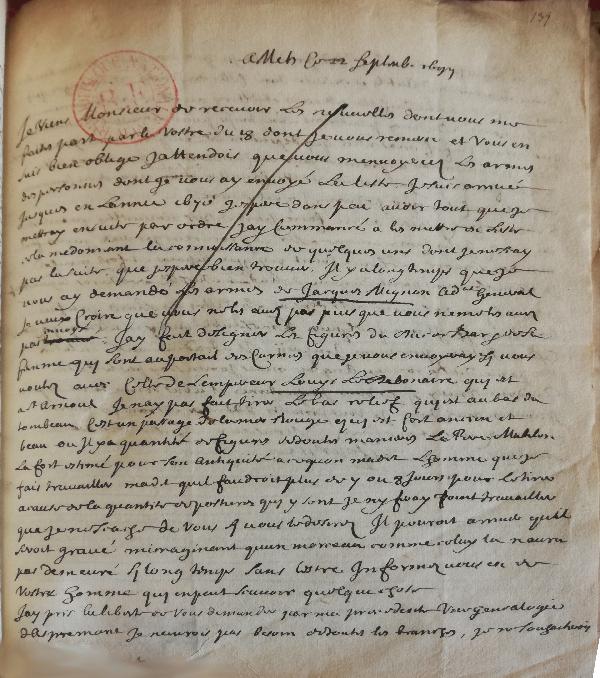 139
A Mets Ce 22 septemb. 1697
Je viens Monsieur de recevoir les nouvelles dont vous me
faites part par la vostre du 18 dont je vous remersie et vous en
suis bien oblige Jattendois que vous menvoyerez les armes
des personnes dont je vous ay envoyé la liste Je suis arrivé
jusques en Lannee 1670 Jespere dans peu avoir tout que je
mettray ensuite par ordre Jay Commancé a les mettre de suite
cela me donnant la connoissance de quelques uns dont je nestay
pas la suite, que jespere bien trouver. Il y a longtemps que je
vous ay demandé les armes de Jacques Mignon
je veux Croire que vous ne les avez pas puis que vous ne me les avez
pas envoyé. Jay fait designer les figures du
femme qui sont au portail des Carmes que je vous envoyeray si vous
voulez avec Celle de Lempereur Louys Le Debonaire qui est
a St Arnoul Je nay pas fait tirer le bas relief qui est au bas du
tombeau Cest un passage de la mer Rouge qui est fort ancien et
beau ou Il y a quantité de figures de toutes manieres Le Pere Mabilon
La fort estimé pour son antiquité a ce quon ma dit Lhomme que je
fais travailler ma dit quil faudroit plus de 7 ou 8 Jours pour le tirer
a cause de la quantité de postures qui y sont Je ny feray point travailler
que je ne scache de vous si vous le desirez Il pouroit arriver quil
seroit gravé mimaginant quun morceau comme celuy la naura
pas demeuré si long temps sans lestre Informez vous en de
vostre homme qui en peut scavoir quelque chose
Jay pris la liberté de vous demander par ma precedente Une genealogie
daspremont Je naurois pas besoin de toutes les branches, je ne